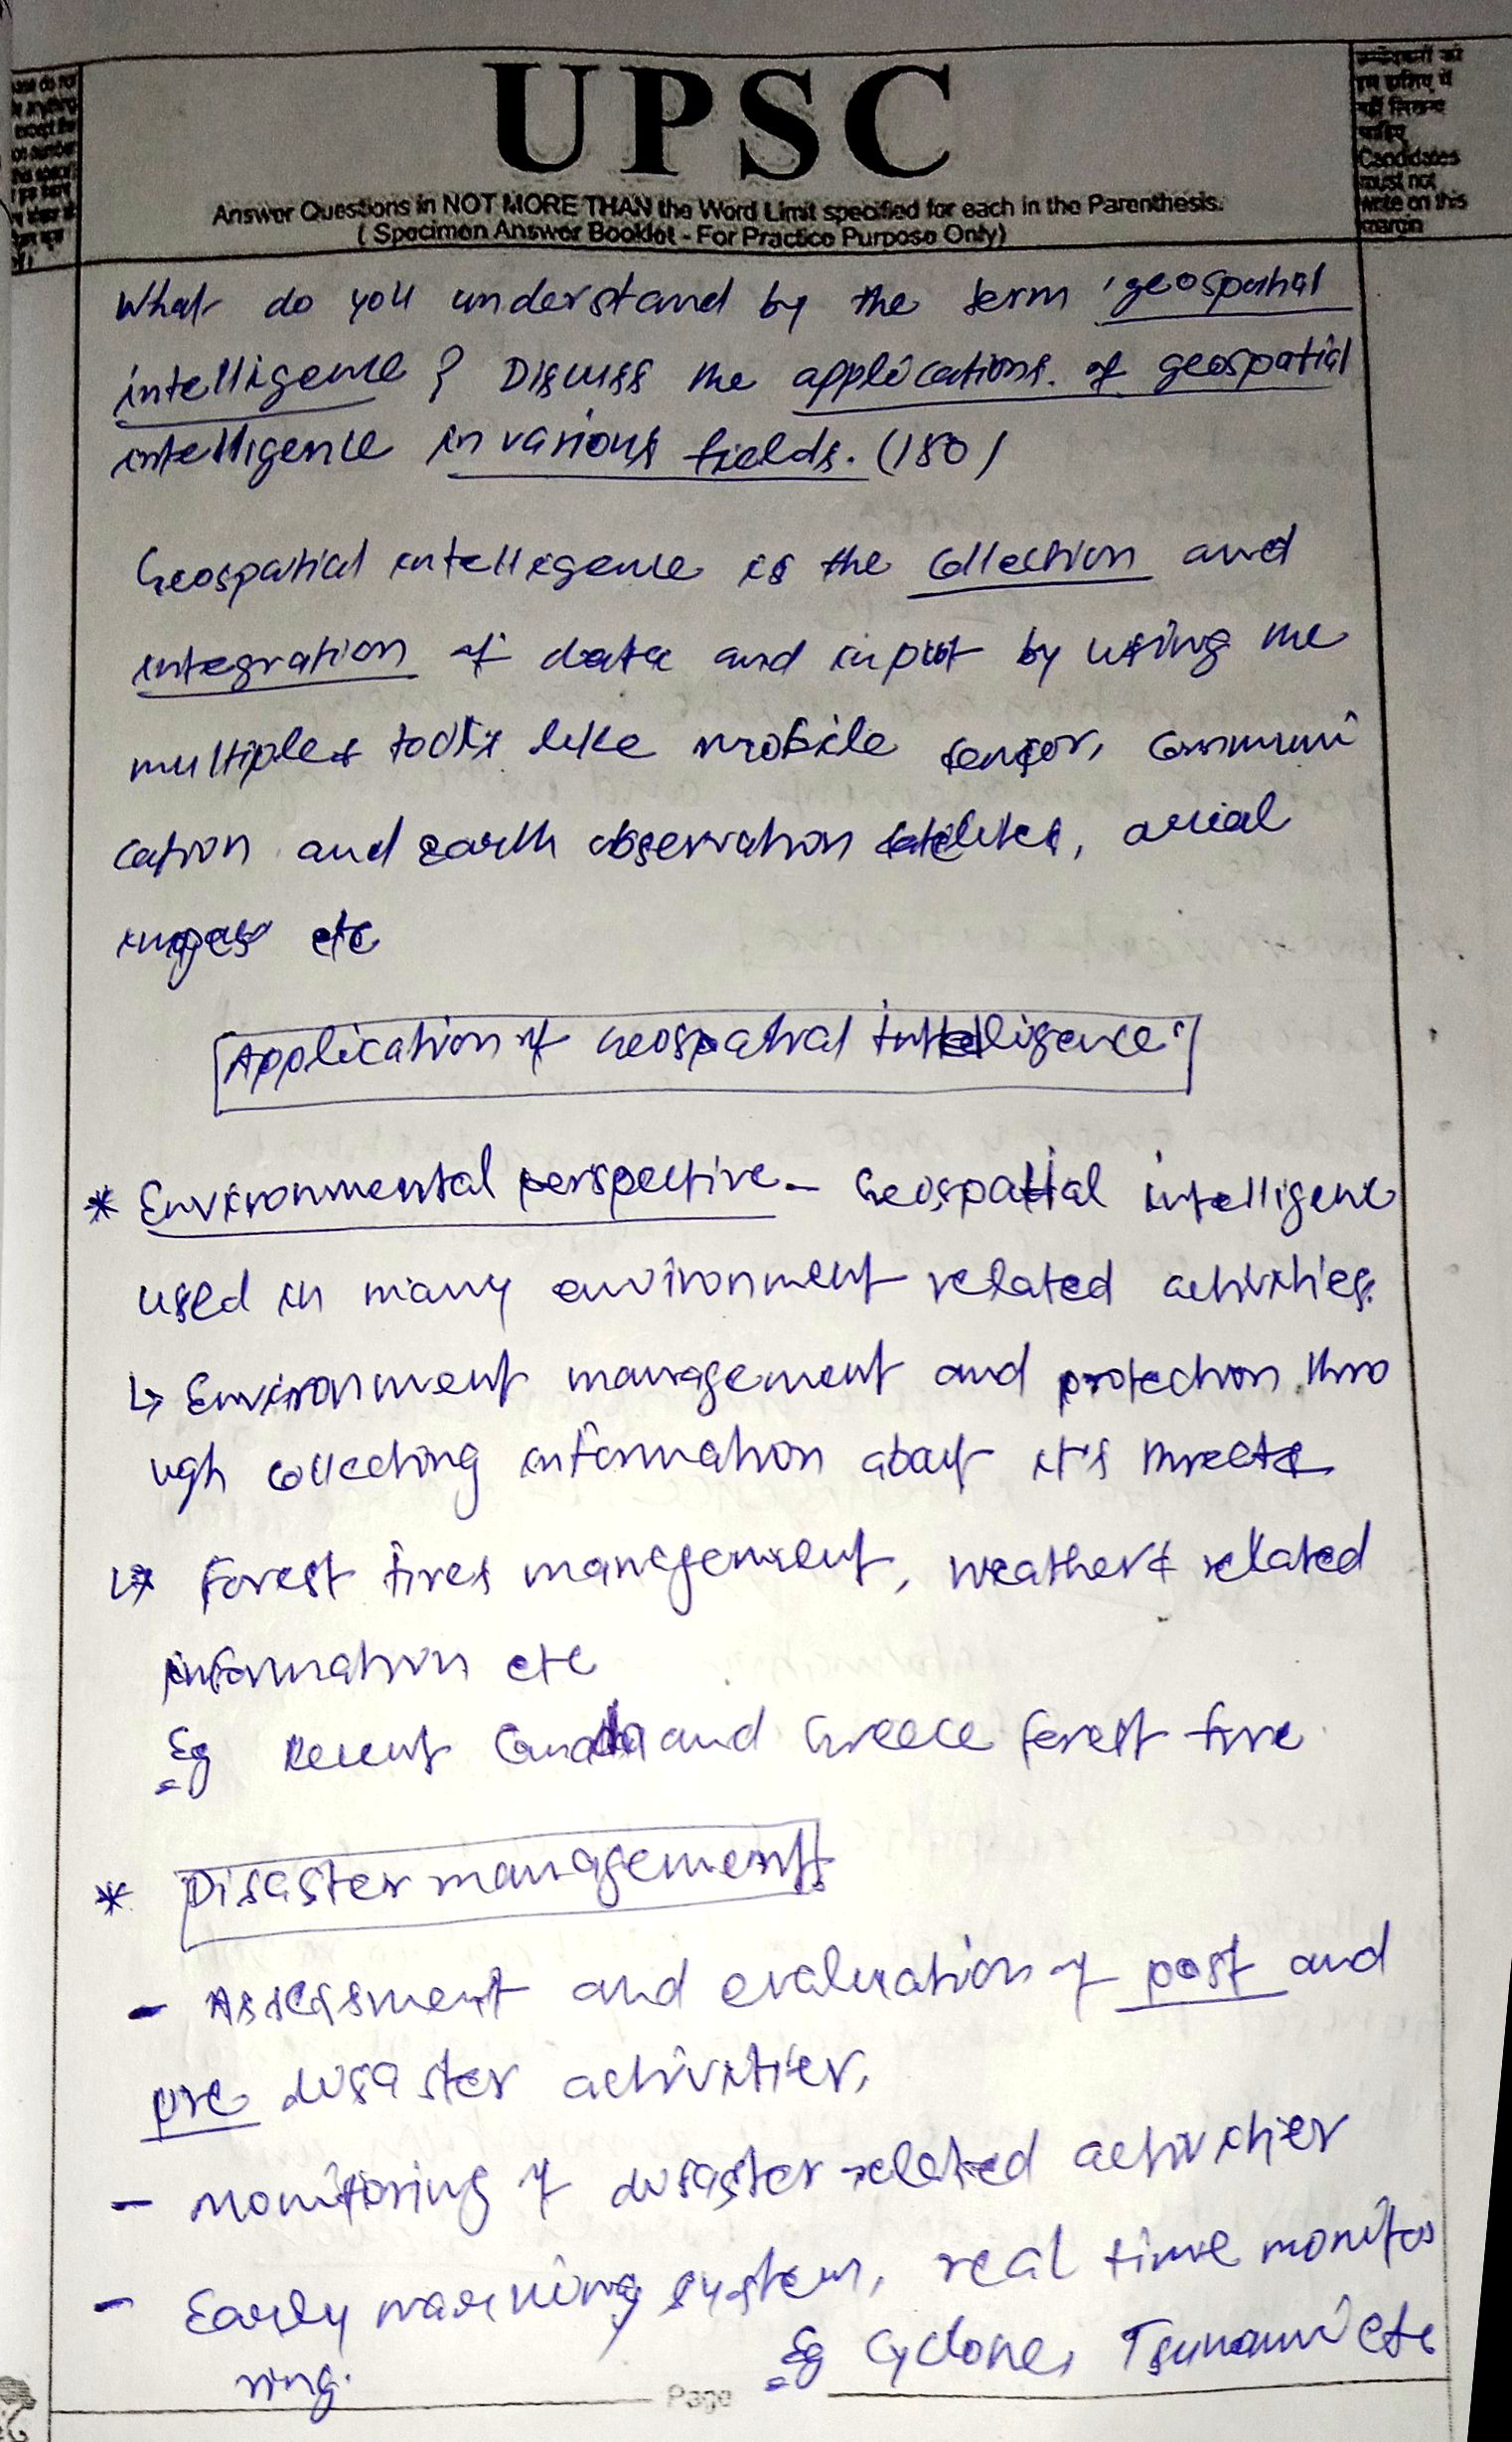 UPSC
Answer Questions in NOT MORE THAN the Word Limit specified for each in the Parenthesis.
( Specimen Answer Booklet - For Practice Purpose Only)
उम्मीदवारों को
इस हाशिए में
नहीं लिखना
चाहिए
Candidates
must not
write on this
margin
What do you understand by the term 'geospatial
intelligence? Discuss the applications of geospatial
intelligence in various fields. (150)
Geospatial intelligence is the collection and
integration of data and input by using the
multiple tools like mobile sensor, communi
cation and earth observation satelites, arial
images etc
Application of Geospatial intelligence:
* Environmental perspective - Geospatial intelligence
used in many environment related activities.
↳ Environment management and protection thro
ugh collecting information about it's threats
↳ Forest fires management, weather related
information etc
Eg Recent Canada and Greece forest fire
* Disaster management
- Assessment and evaluation of post and
pre disaster activities,
- monitoring of disaster related activities
- Early warning system, real time monito
ring.
Eg Cyclone, Tsunami etc
Page